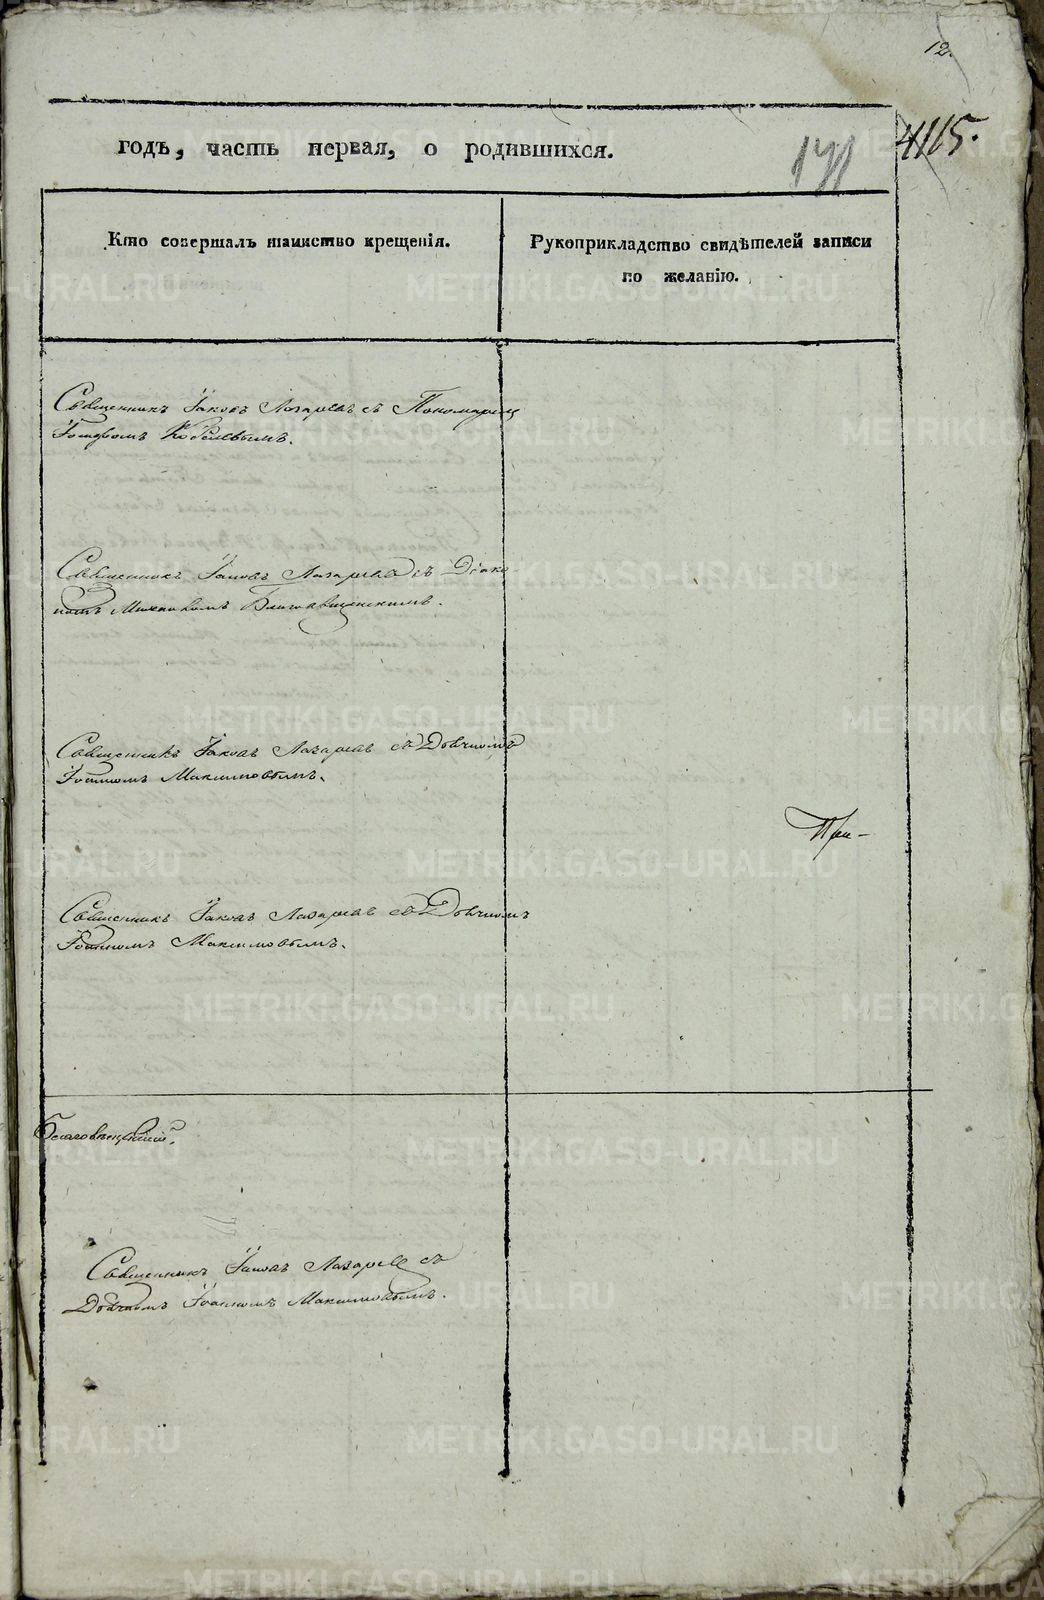 12.
годъ, часть первая, о родившихся.
171
4115.
Кто совершалъ таинство крещенія.
Рукоприкладство свидѣтелей записи
по желанію.
Священникъ Іаковъ Лазаревъ съ Пономаремъ
Священникъ Іаковъ Лазаревъ съ Діако-
номъ Михаиломъ
Священникъ Іаковъ Лазаревъ съ Дьячкомъ
Іоанномъ Максимовымъ.
При-
Священникъ Іаковъ Лазаревъ съ Дьячкомъ
Іоанномъ Максимовымъ.
Священникъ Іаковъ Лазаревъ съ
Дьячкомъ Іоанномъ Максимовымъ.
METRIKI.GASO-URAL.RU